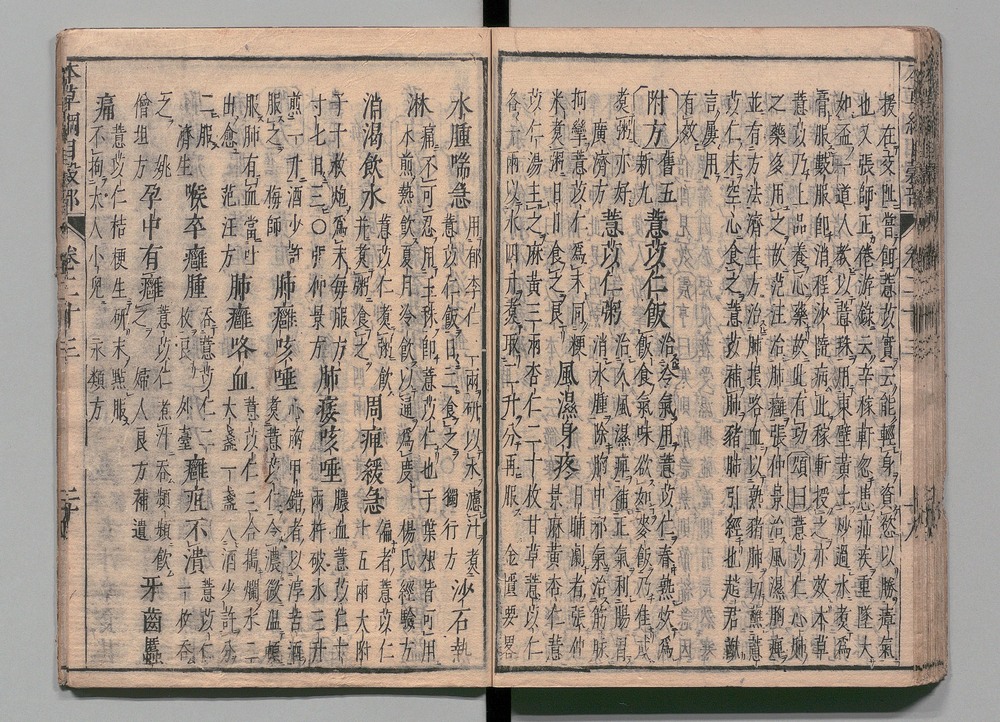 援在交趾嘗餌薏苡實云能輕身資慾以勝瘴氣
也又張師正倦游錄云辛稼軒忽患疝疾重墜大
如盃一道人教以薏珠用東壁黃土炒過水煮爲
膏服數服即消程沙隨病此稼軒授之亦效本草
薏苡乃上品養心藥故此有功頌曰薏苡仁心肺
之藥多用之故范汪治肺癰張仲景治風濕胸痺
並有方法濟生方治肺損咯血以熟猪肺切蘸薏
苡仁末空心食之薏苡補肺猪肺引經也趙君猷
言屢用
有效
附方 舊五 新九 薏苡仁飯 治冷氣用薏苡仁舂熟炊爲
飯食氣味欲如麥飯乃佳或
煮粥亦好
廣濟方 薏苡仁粥 治久風濕痺補正氣利腸胃
消水腫除胸中邪氣治筋脉
拘攣薏苡仁爲末同粳
米煮粥日日食之良 風濕身疼 日晡劇者張仲
景麻黃杏仁薏
苡仁湯主之麻黃三兩杏仁二十枚甘草薏苡仁
各一兩以水四升煮取二升分再服 金匱要畧
水腫喘急 用郁李仁二兩研以水濾汁煮
薏苡仁飯日二食之 獨行方 沙石熱
淋 痛不可忍用玉珠即薏苡仁也子葉根皆可用
水煎熱飲夏月冷飲以通爲度 楊氏經驗方
消渴飲水 薏苡仁煮粥飲
并煮粥食之 周痺緩急 偏者薏苡仁
十五兩大附
子十枚炮爲末每服方
寸七日三 張仲景方 肺痿咳唾 膿血薏苡仁十
兩杵破水三升
煎一升酒少許
服之 梅師 肺癰咳唾 心胸甲錯者以淳苦酒
煮薏苡仁令濃微温頓
服肺有血當吐
出愈 范汪方 肺癰咯血 薏苡仁三合搗爛水二
大盞一盞入酒少許分
二服
濟生 喉卒癰腫 吞薏苡仁二
枚良 外臺 癰疽不潰 薏苡仁
一枚吞
之 姚
僧坦方 孕中有癰 薏苡仁煮汁吞頻頻飲
之 婦人良方補遺 牙齒䘌
痛 薏苡仁桔梗生研末點服
不拘大人小兒 永類方
本草綱目穀部
卷二十三